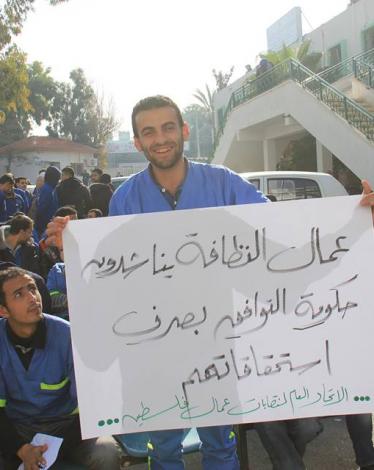 عمال النظافة يناشدون
حكومة التوافق بصرف
استحقاقاتهم
الاتحاد العام لنقابات عمال فلسطين...